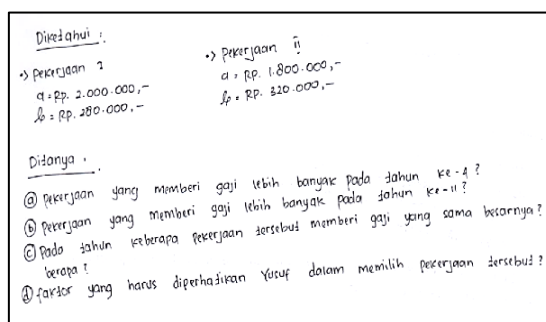 Diketahui :
•> Pekerjaan I
a = Rp. 2.000.000,-
b = Rp. 280.000,-
•> Pekerjaan II
a = Rp. 1.800.000,-
b = Rp. 320.000,-
Ditanya :
ⓐ Pekerjaan yang memberi gaji lebih banyak pada tahun ke-4 ?
ⓑ Pekerjaan yang memberi gaji lebih banyak pada tahun ke-11 ?
ⓒ Pada tahun keberapa pekerjaan tersebut memberi gaji yang sama besarnya ?
berapa ?
ⓓ faktor yang harus diperhatikan Yusuf dalam memilih pekerjaan tersebut ?